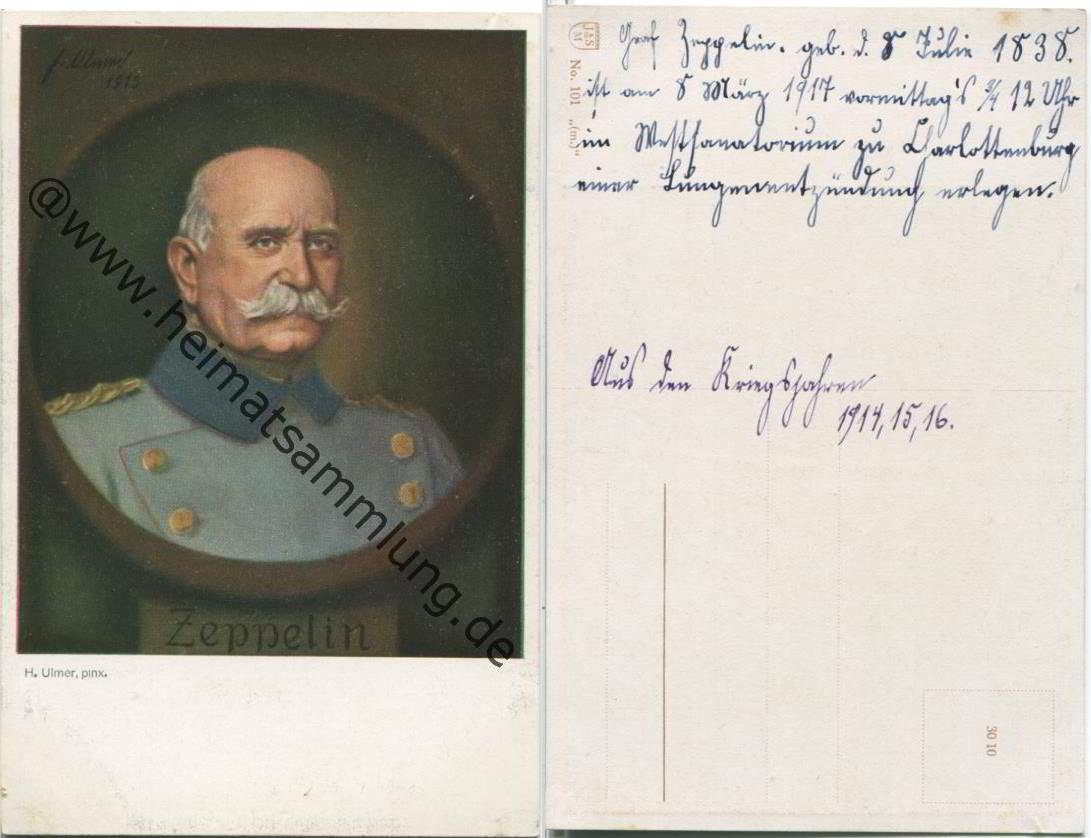 H. Ulmer
1915
Zeppelin
H. Ulmer, pinx.
@www.heimatsammlung.de
J&S
M
No. 101 „(m.)“
Graf Zeppelin. geb. d. 8 Julie 1838.
ist am 8 März 1917 vormittag's ¾ 12 Uhr
im Westsanatorium zu Charlottenburg
einer Lungenentzündung erlegen.
Aus den Kriegsjahren
1914, 15, 16.
30 10